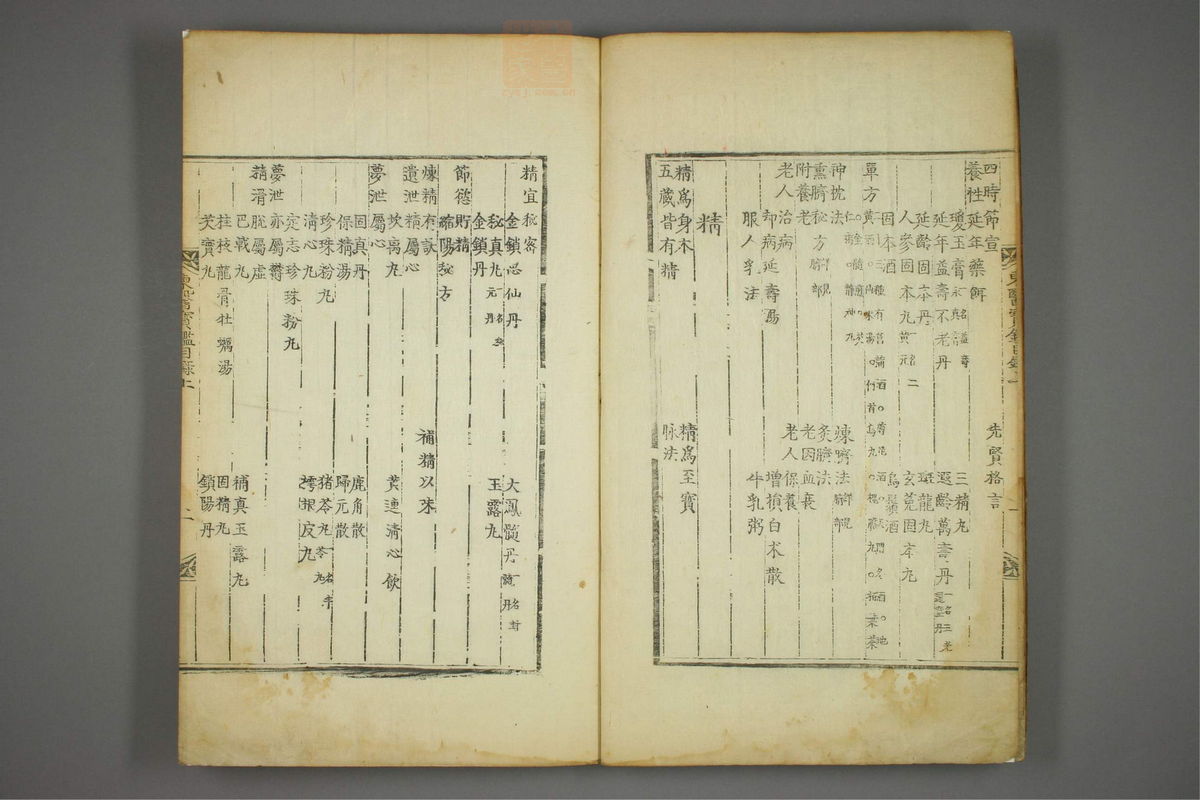 四時節宣
先賢格言
養性延年藥餌
瓊玉膏
三精丸
延年益壽不老丹
還齡萬壽丹
延齡固本丹
斑龍丸
人參固本丸
玄菟固本丸
固本酒
烏鬚酒
單方
神枕法
煉臍法
熏臍秘方
灸臍法
附養老
老因血衰
老人治病
老人保養
却病延壽湯
增損白朮散
服人乳法
牛乳粥
精
精爲身本
精爲至寶
五臟皆有精
脉法
精宜秘密
金鎖思仙丹
大鳳髓丹
秘真丸
玉露丸
金鎖丹
節慾貯精
縮陽秘方
煉精有訣
補精以味
遺泄精屬心
坎离丸
黃連清心飲
夢泄屬心
固真丹
鹿角散
保精湯
歸元散
珍珠粉丸
猪苓丸
清心丸
樗根皮丸
定志珍珠粉丸
夢泄亦屬鬱
精滑脫屬虛
巴戟丸
補真玉露丸
桂枝龍骨牡蠣湯
固精丸
芡實丸
鎖陽丹